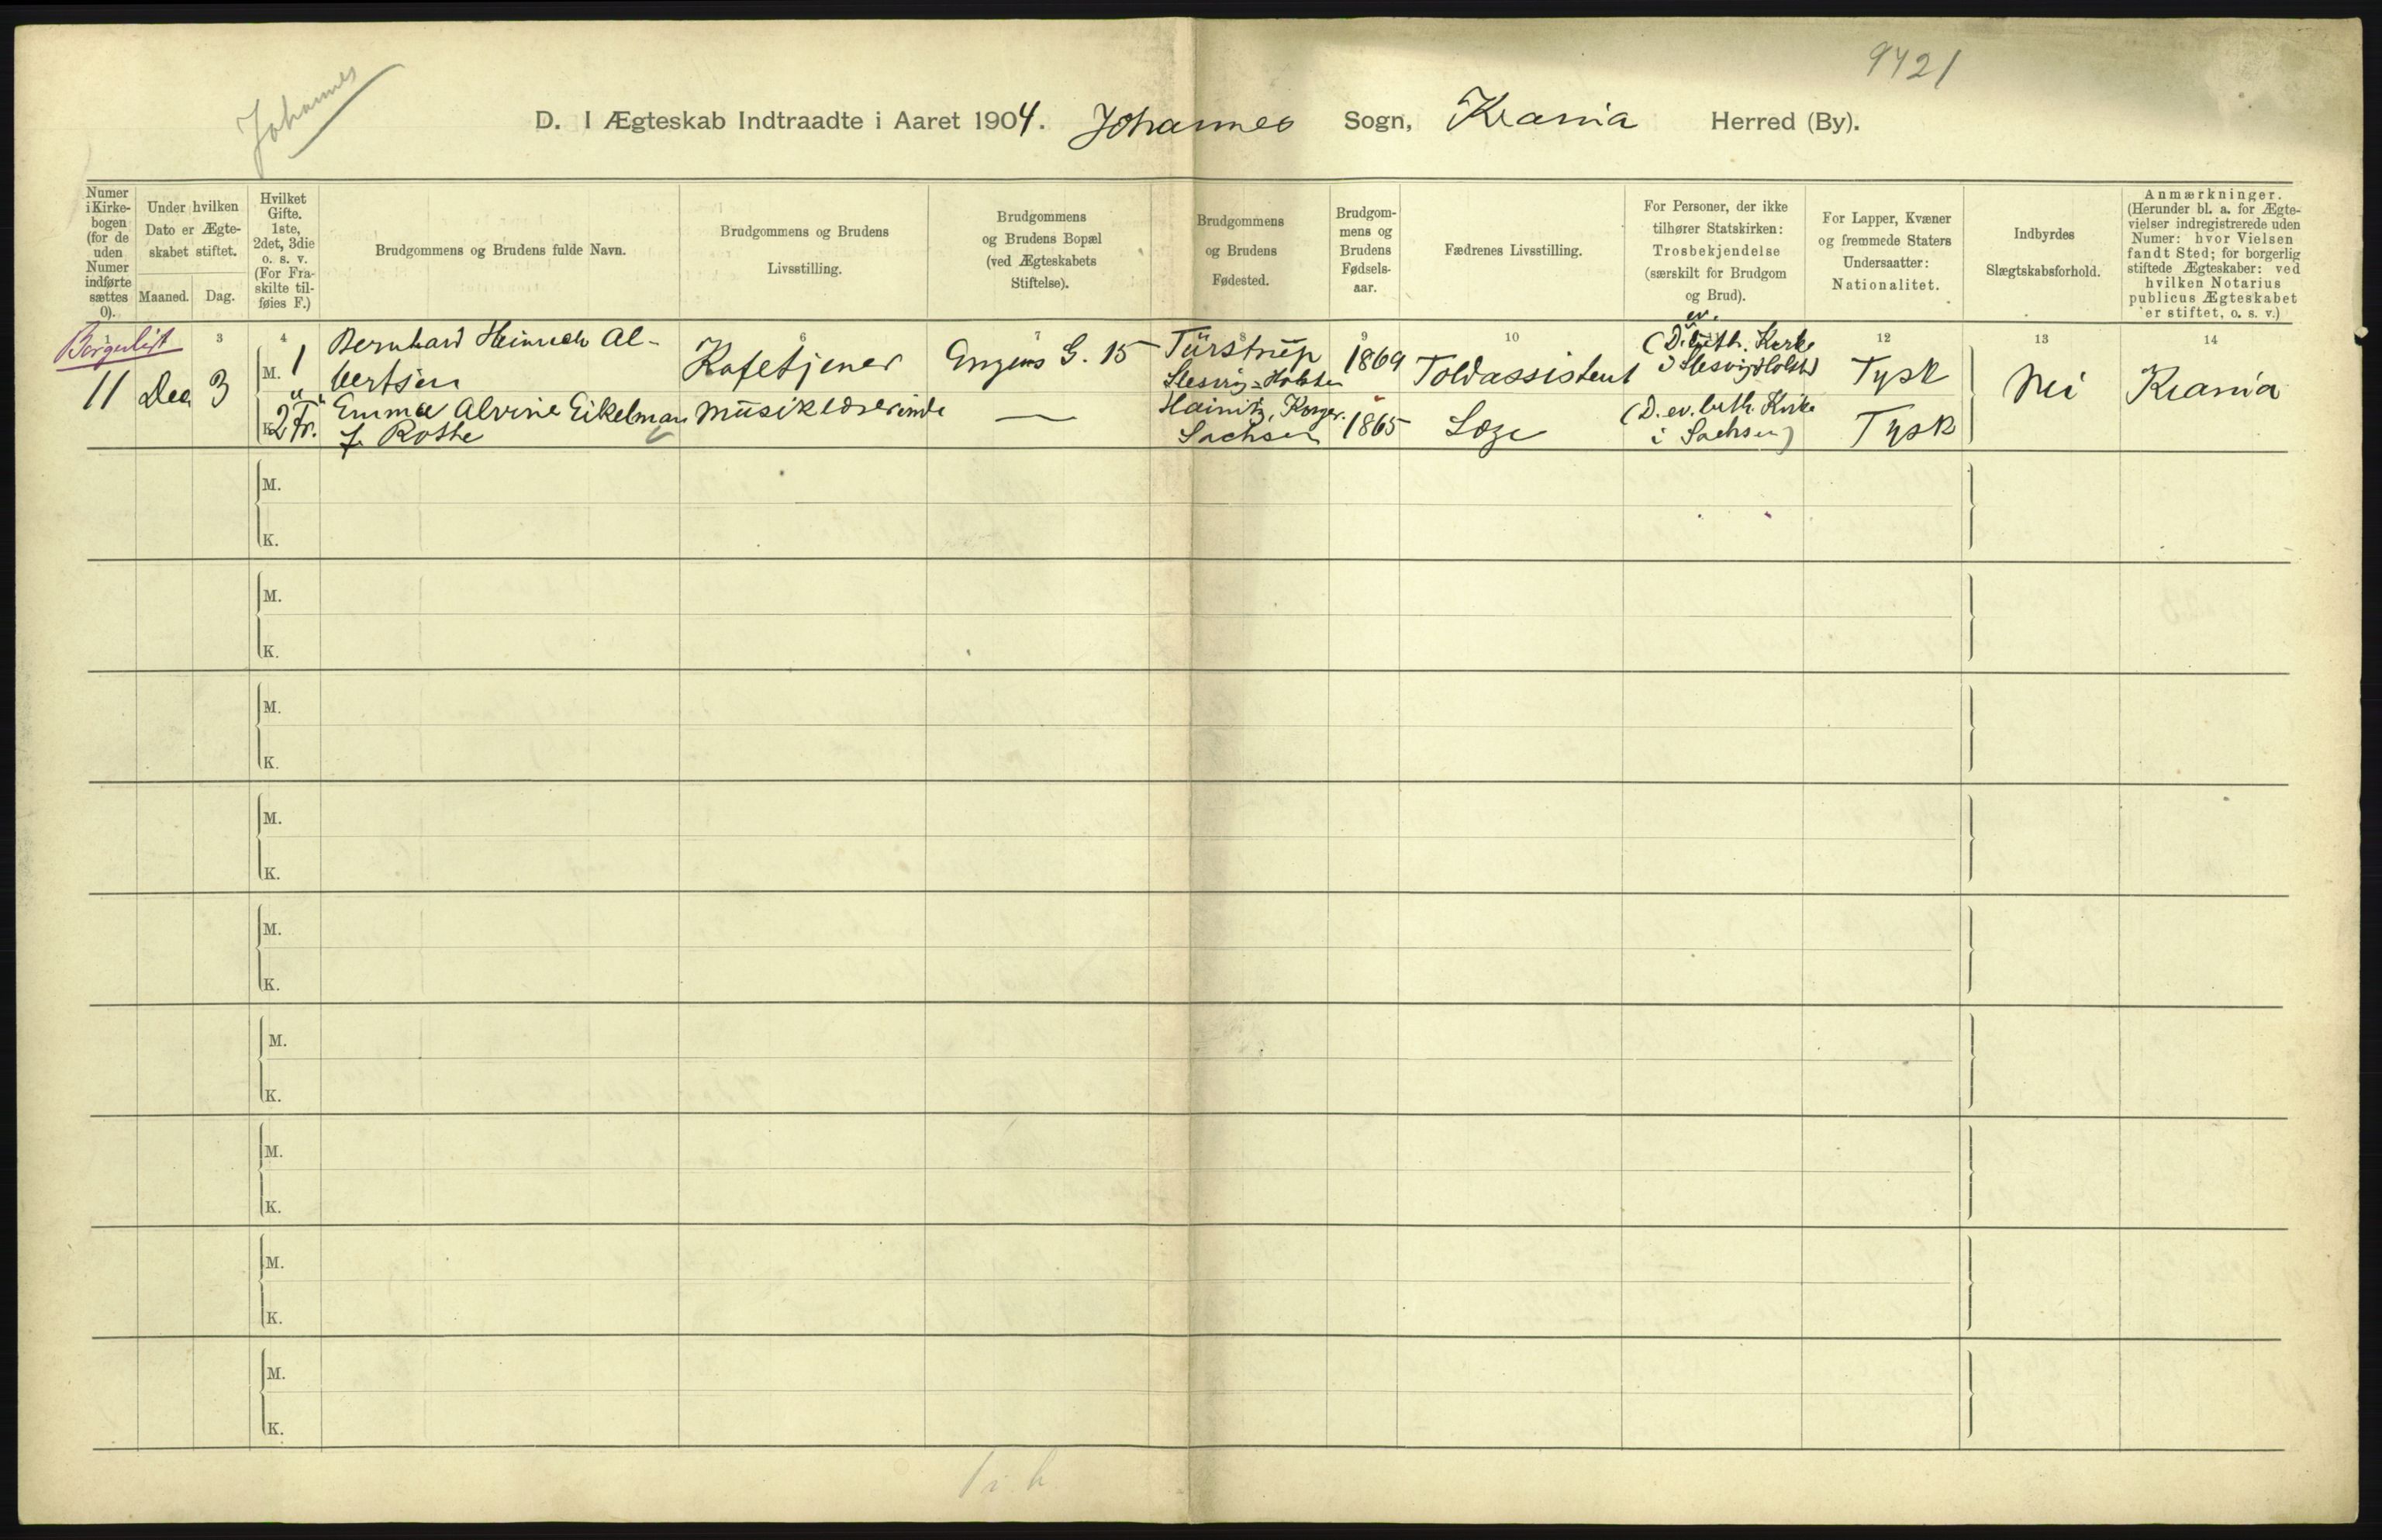 Johannes
9421
D. I Ægteskab Indtraadte i Aaret 1904. Johannes Sogn, Krania Herred (By).
Numer
i Kirke-
bogen
(for de
uden
Numer
indførte
sættes
0).
Under hvilken
Dato er Ægte-
skabet stiftet.
Maaned. Dag.
Hvilket
Gifte.
1ste,
2det, 3die
o. s. v.
(For Fra-
skilte til-
føies F.)
Brudgommens og Brudens fulde Navn.
Brudgommens og Brudens
Livsstilling.
Brudgommens
og Brudens Bopæl
(ved Ægteskabets
Stiftelse).
Brudgommens
og Brudens
Fødested.
Brudgom-
mens og
Brudens
Fødsels-
aar.
Fædrenes Livsstilling.
For Personer, der ikke
tilhører Statskirken:
Trosbekjendelse
(særskilt for Brudgom
og Brud).
For Lapper, Kvæner
og fremmede Staters
Undersaatter:
Nationalitet.
Indbyrdes
Slægtskabsforhold.
Anmærkninger.
(Herunder bl. a. for Ægte-
vielser indregistrerede uden
Numer: hvor Vielsen
fandt Sted; for borgerlig
stiftede Ægteskaber: ved
hvilken Notarius
publicus Ægteskabet
er stiftet, o. s. v.)
3 4 6 7 8 9 10 12 13 14
Borgerligt
11 Dec 3
M. 1
Bernhard Heinrich Al-
bertsen
Kafetjener
Engens G. 15
Türstrup
Slesvig-Holsten
1869
Toldassistent
(D. ev. luth. Kirke
i Slesvig Holst.)
Tysk
Nei
Krania
K. 2 Fr.
Emma Alvine Eikelman
f. Rothe
Musiklærerinde
—
Hainitz, Sachsen
1865
Læge
(D. ev. luth. Kirke
i Sachsen)
Tysk
M.
K.
M.
K.
M.
K.
M.
K.
M.
K.
M.
K.
M.
K.
M.
K.
M.
K.